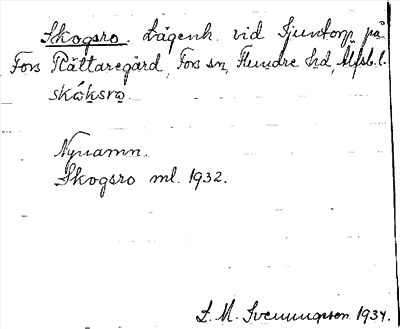 Skogsro. Lägenh. vid Sjuntorp på
Fors Rättaregård, Fors sn, Flundre hd, Älfsb. l.
skóksrω.
Nynamn.
Skogsro ml. 1932.
L. M. Svenungsson 1934.